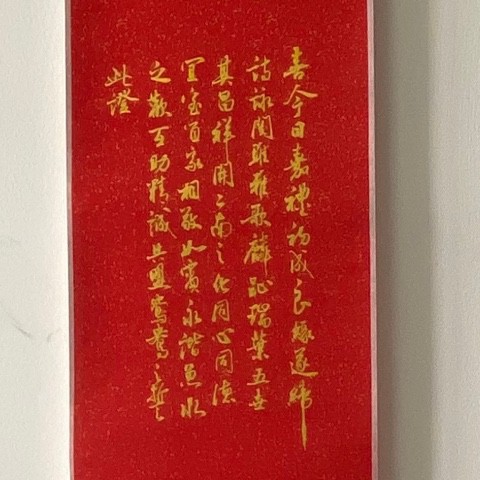 喜今日嘉禮初成良緣遂締
詩詠關雎雅歌麟趾瑞葉五世
其昌祥開二南之化同心同德
宜室宜家相敬如賓永諧魚水
之歡互助精誠共盟鴛鴦之誓
此證